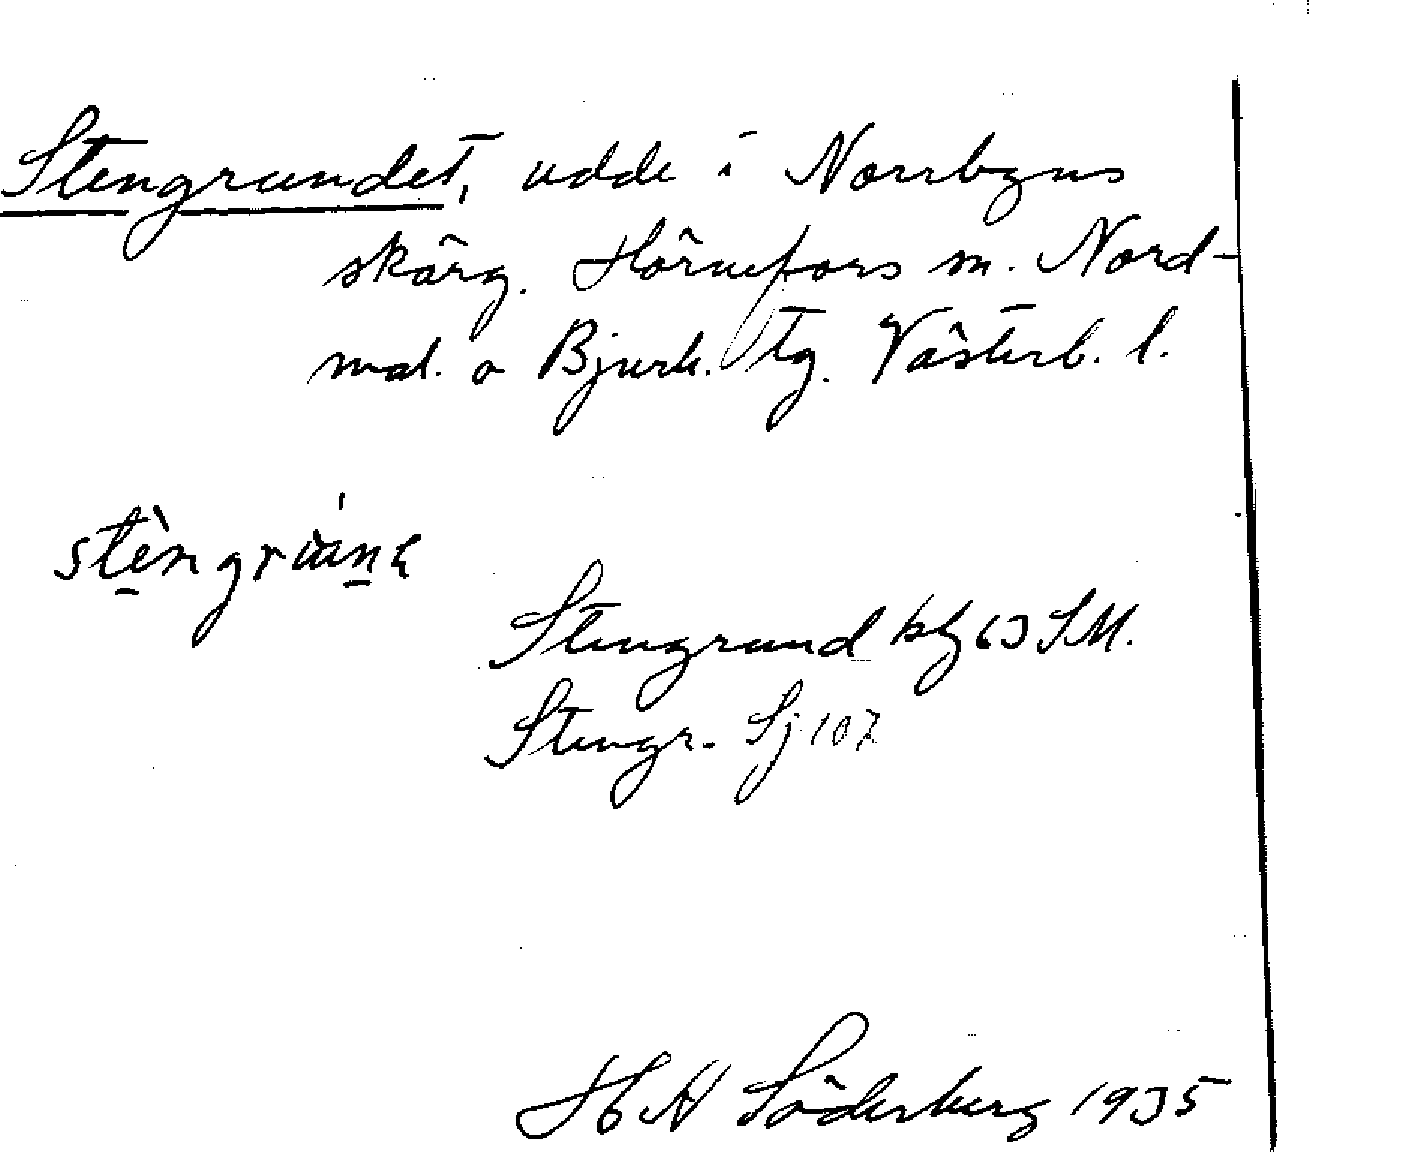 Stengrundet, udde i Norrbyns
skärg. Hörnefors sn. Nord-
mal. o Bjurh. tg. Västerb. l.
Stengrund kbl 63 SM.
Stengr. Sj 107
H N Söderberg 1935